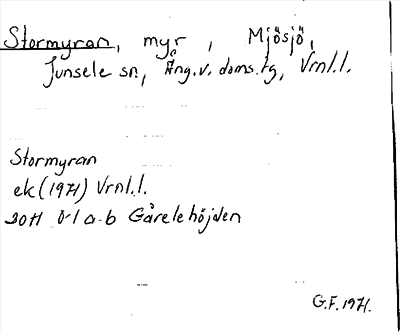 Stormyran, myr, Mjösjö,
Junsele sn., Ång.v. doms.tg, Vrnl.l.
Stormyran
ek (1971) Vrnl.l.
20H 0-1 a-b Gårelehöjden
G.F. 1971.